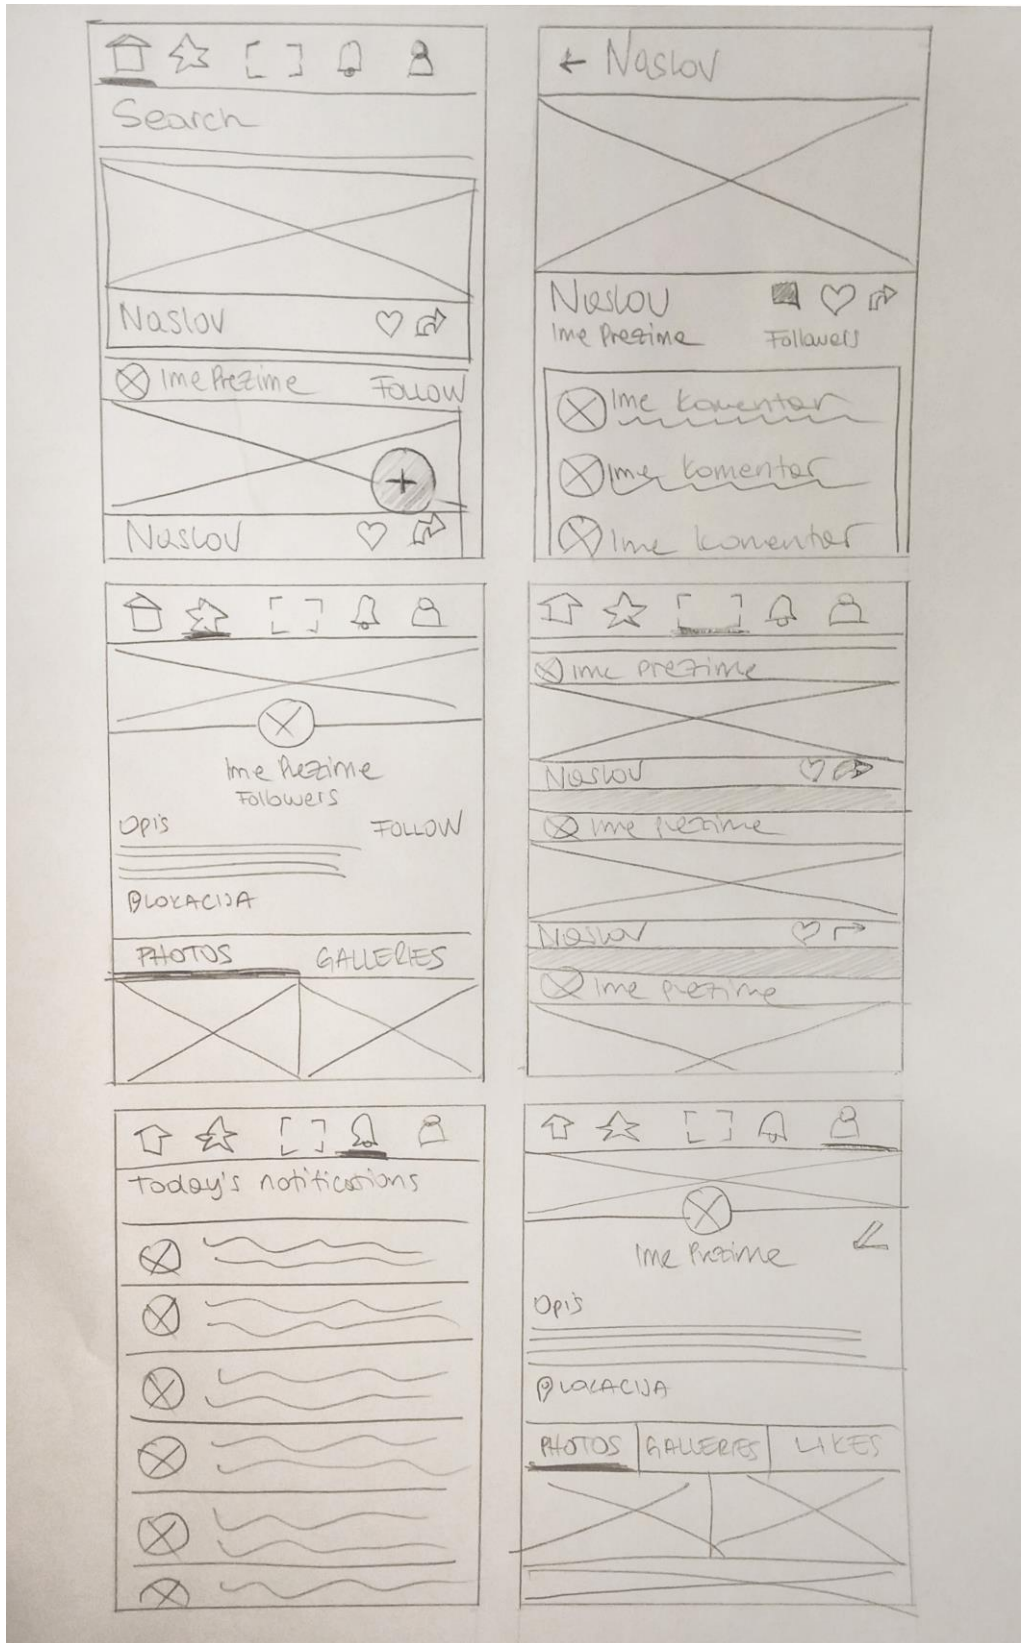 Search
Naslov
Ime Prezime FOLLOW
Naslov
← Naslov
Naslov
Ime Prezime Followers
Ime komentar
Ime komentar
Ime komentar
Ime Prezime
Followers
Opis FOLLOW
LOKACIJA
PHOTOS GALLERIES
Ime prezime
Naslov
Ime prezime
Naslov
Ime prezime
Today's notifications
Ime Prezime
Opis
LOKACIJA
PHOTOS GALLERIES LIKES